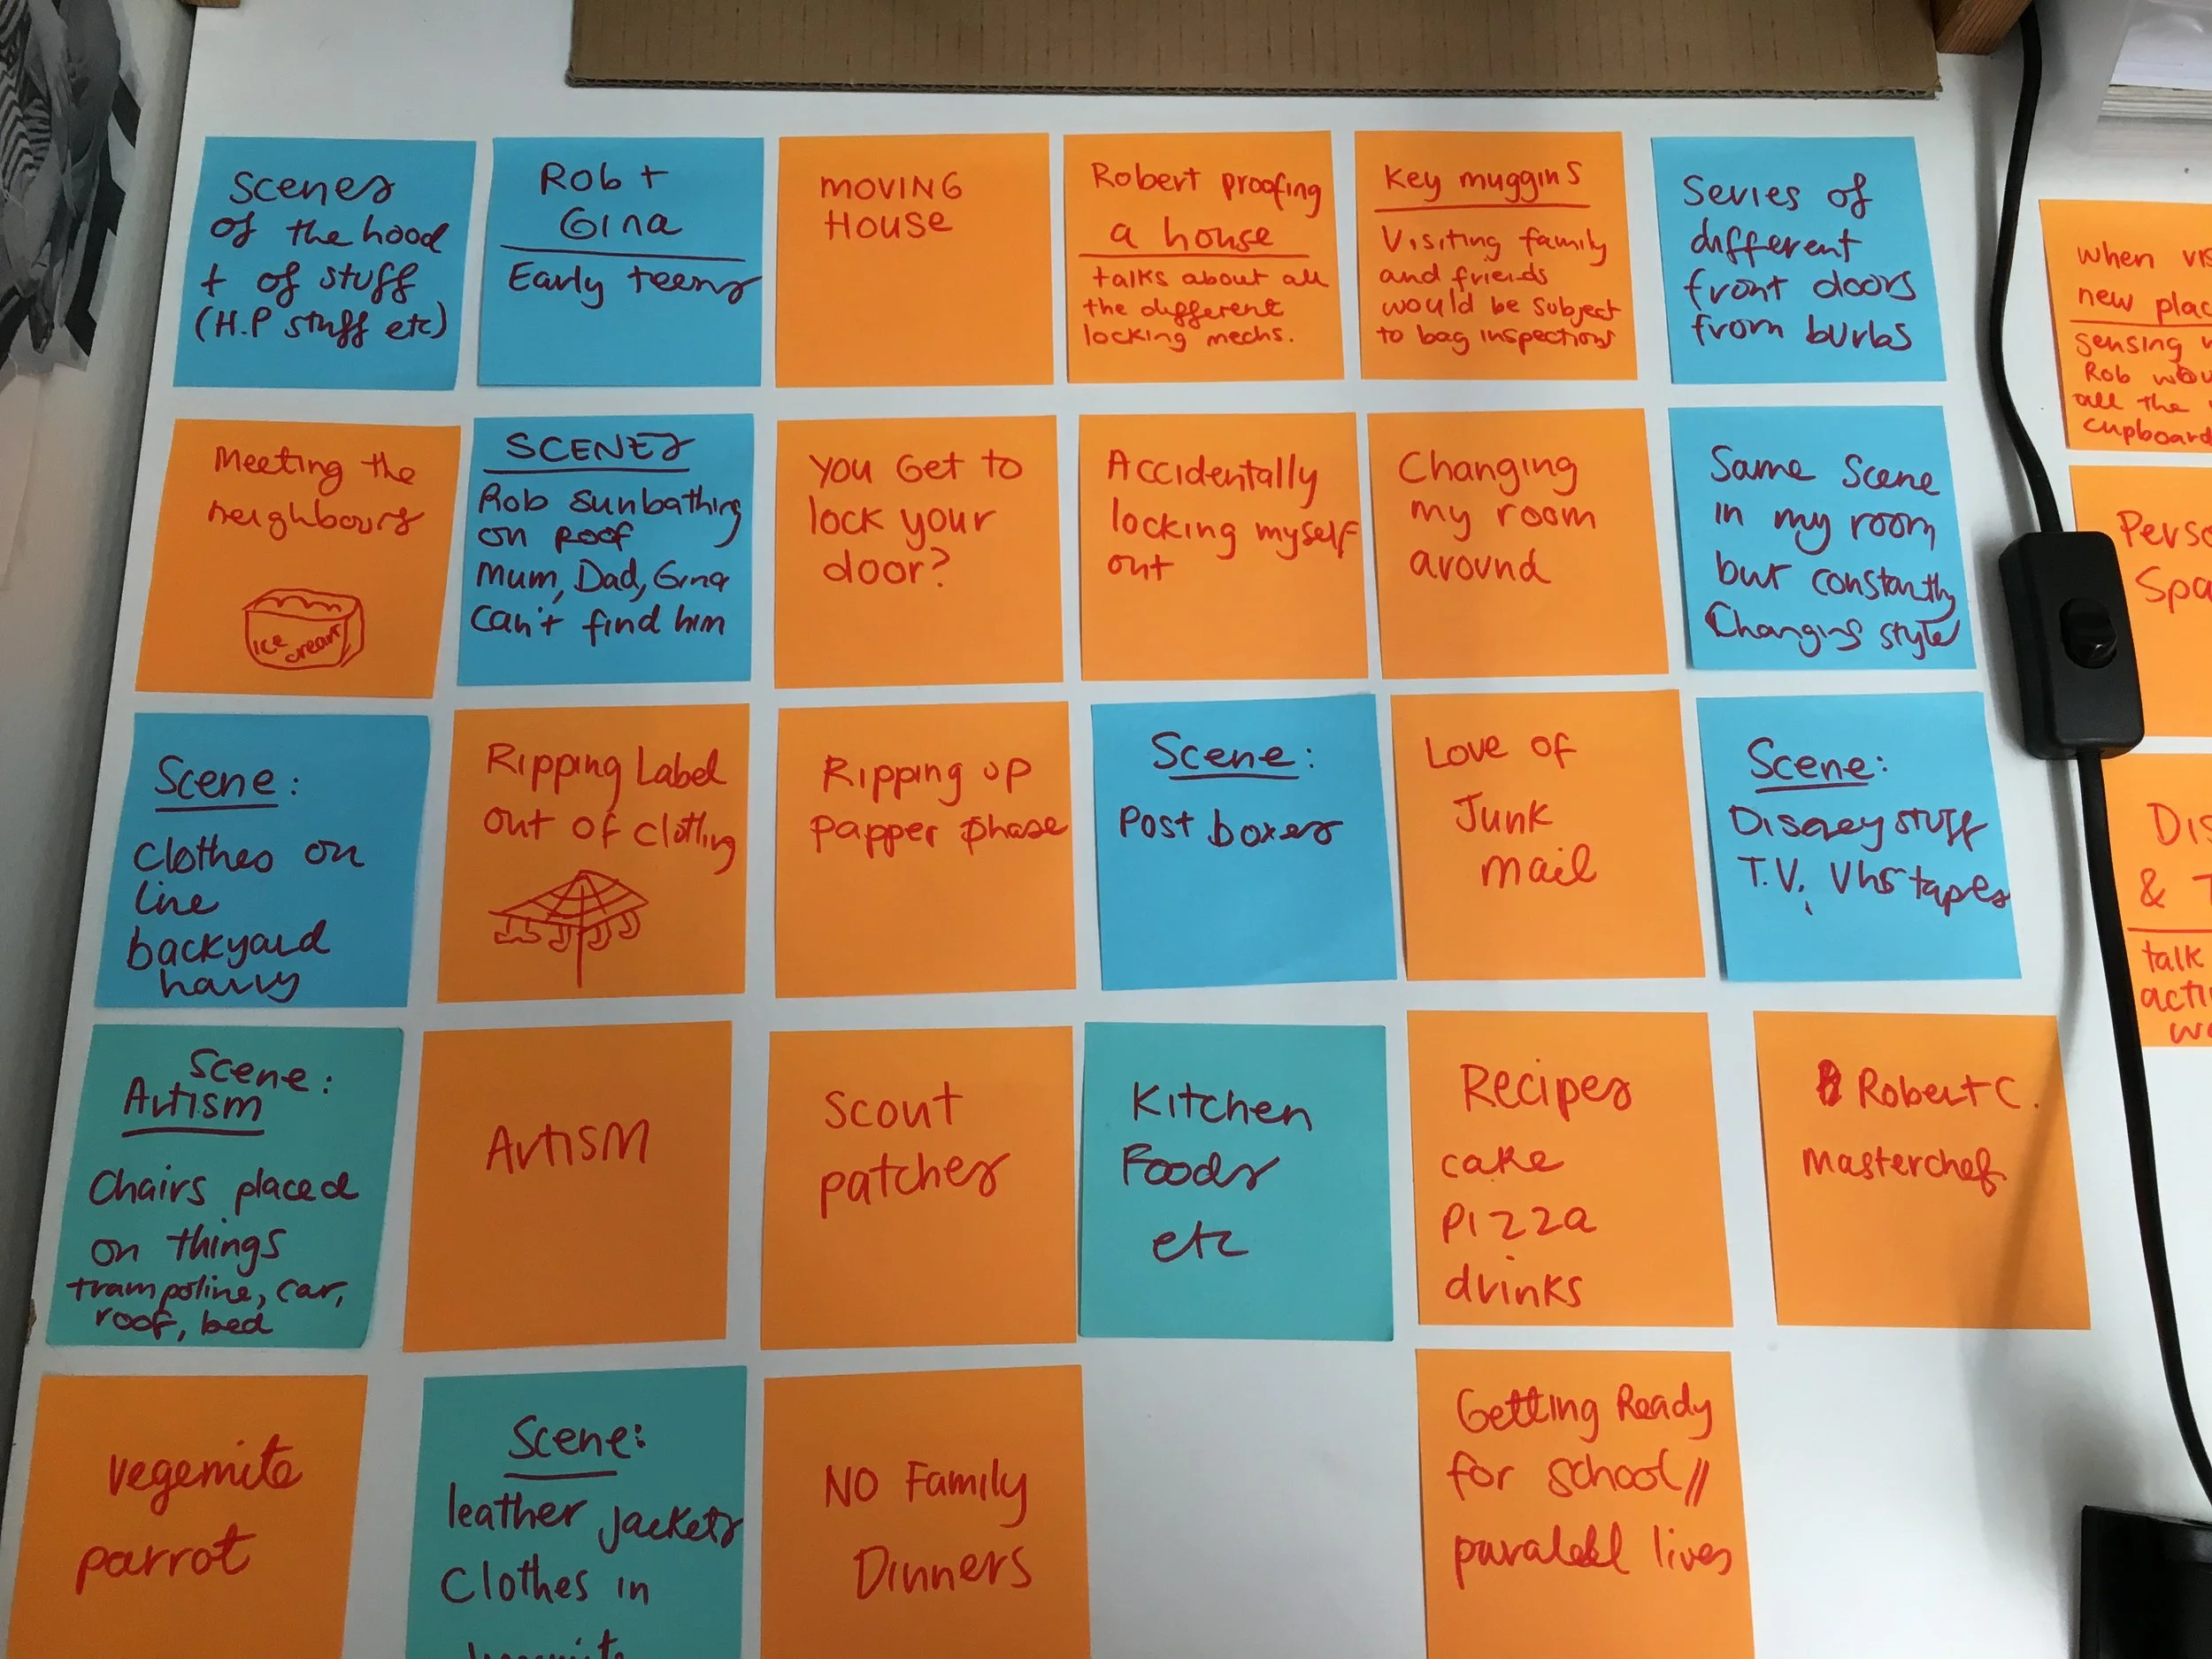 Scenes
of the hood
+ of stuff
(H.P stuff etc)
Rob +
Gina
Early teens
MOVING
HOUSE
Robert proofing
a house
talks about all
the different
locking mechs.
Key muggins
Visiting family
and friends
would be subject
to bag inspections
Series of
different
front doors
from burbs
when vis
new plac
sensing
Rob wou
all the
cupboard
Meeting the
neighbours
ice cream
SCENES
Rob sunbathing
on roof
Mum, Dad, Gina
can't find him
YOU GET to
lock your
door?
Accidentally
locking myself
out
Changing
my room
around
Same Scene
in my room
but constantly
Changing style
Perso
Spa
Scene:
Clothes on
line
backyard
Ripping Label
out of clothing
Ripping up
papper phase
Scene:
Post boxes
Love of
Junk
mail
Scene:
Disney stuff
T.V, Vhs tapes
Dis
& T
talk
acti
wo
Scene:
Autism
Chairs placed
on things
trampoline, car,
roof, bed
Autism
Scout
patches
Kitchen
Foods
etc
Recipes
cake
pizza
drinks
Robert C.
Masterchef
Vegemite
parrot
Scene:
leather jackets
Clothes in
NO Family
Dinners
Getting Ready
for school //
paralell lives